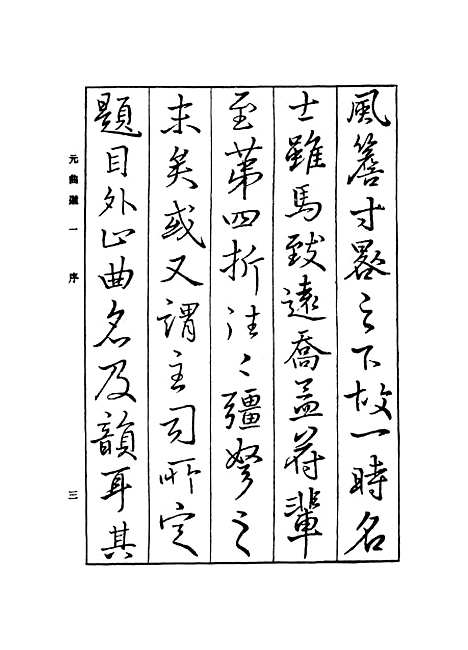 風簷寸晷之下故一時名
士雖馬致遠喬孟符輩
至第四折往〻彊弩之
末矣或又謂主司所定
題目外止曲名及韻耳其
元曲選一 序
三